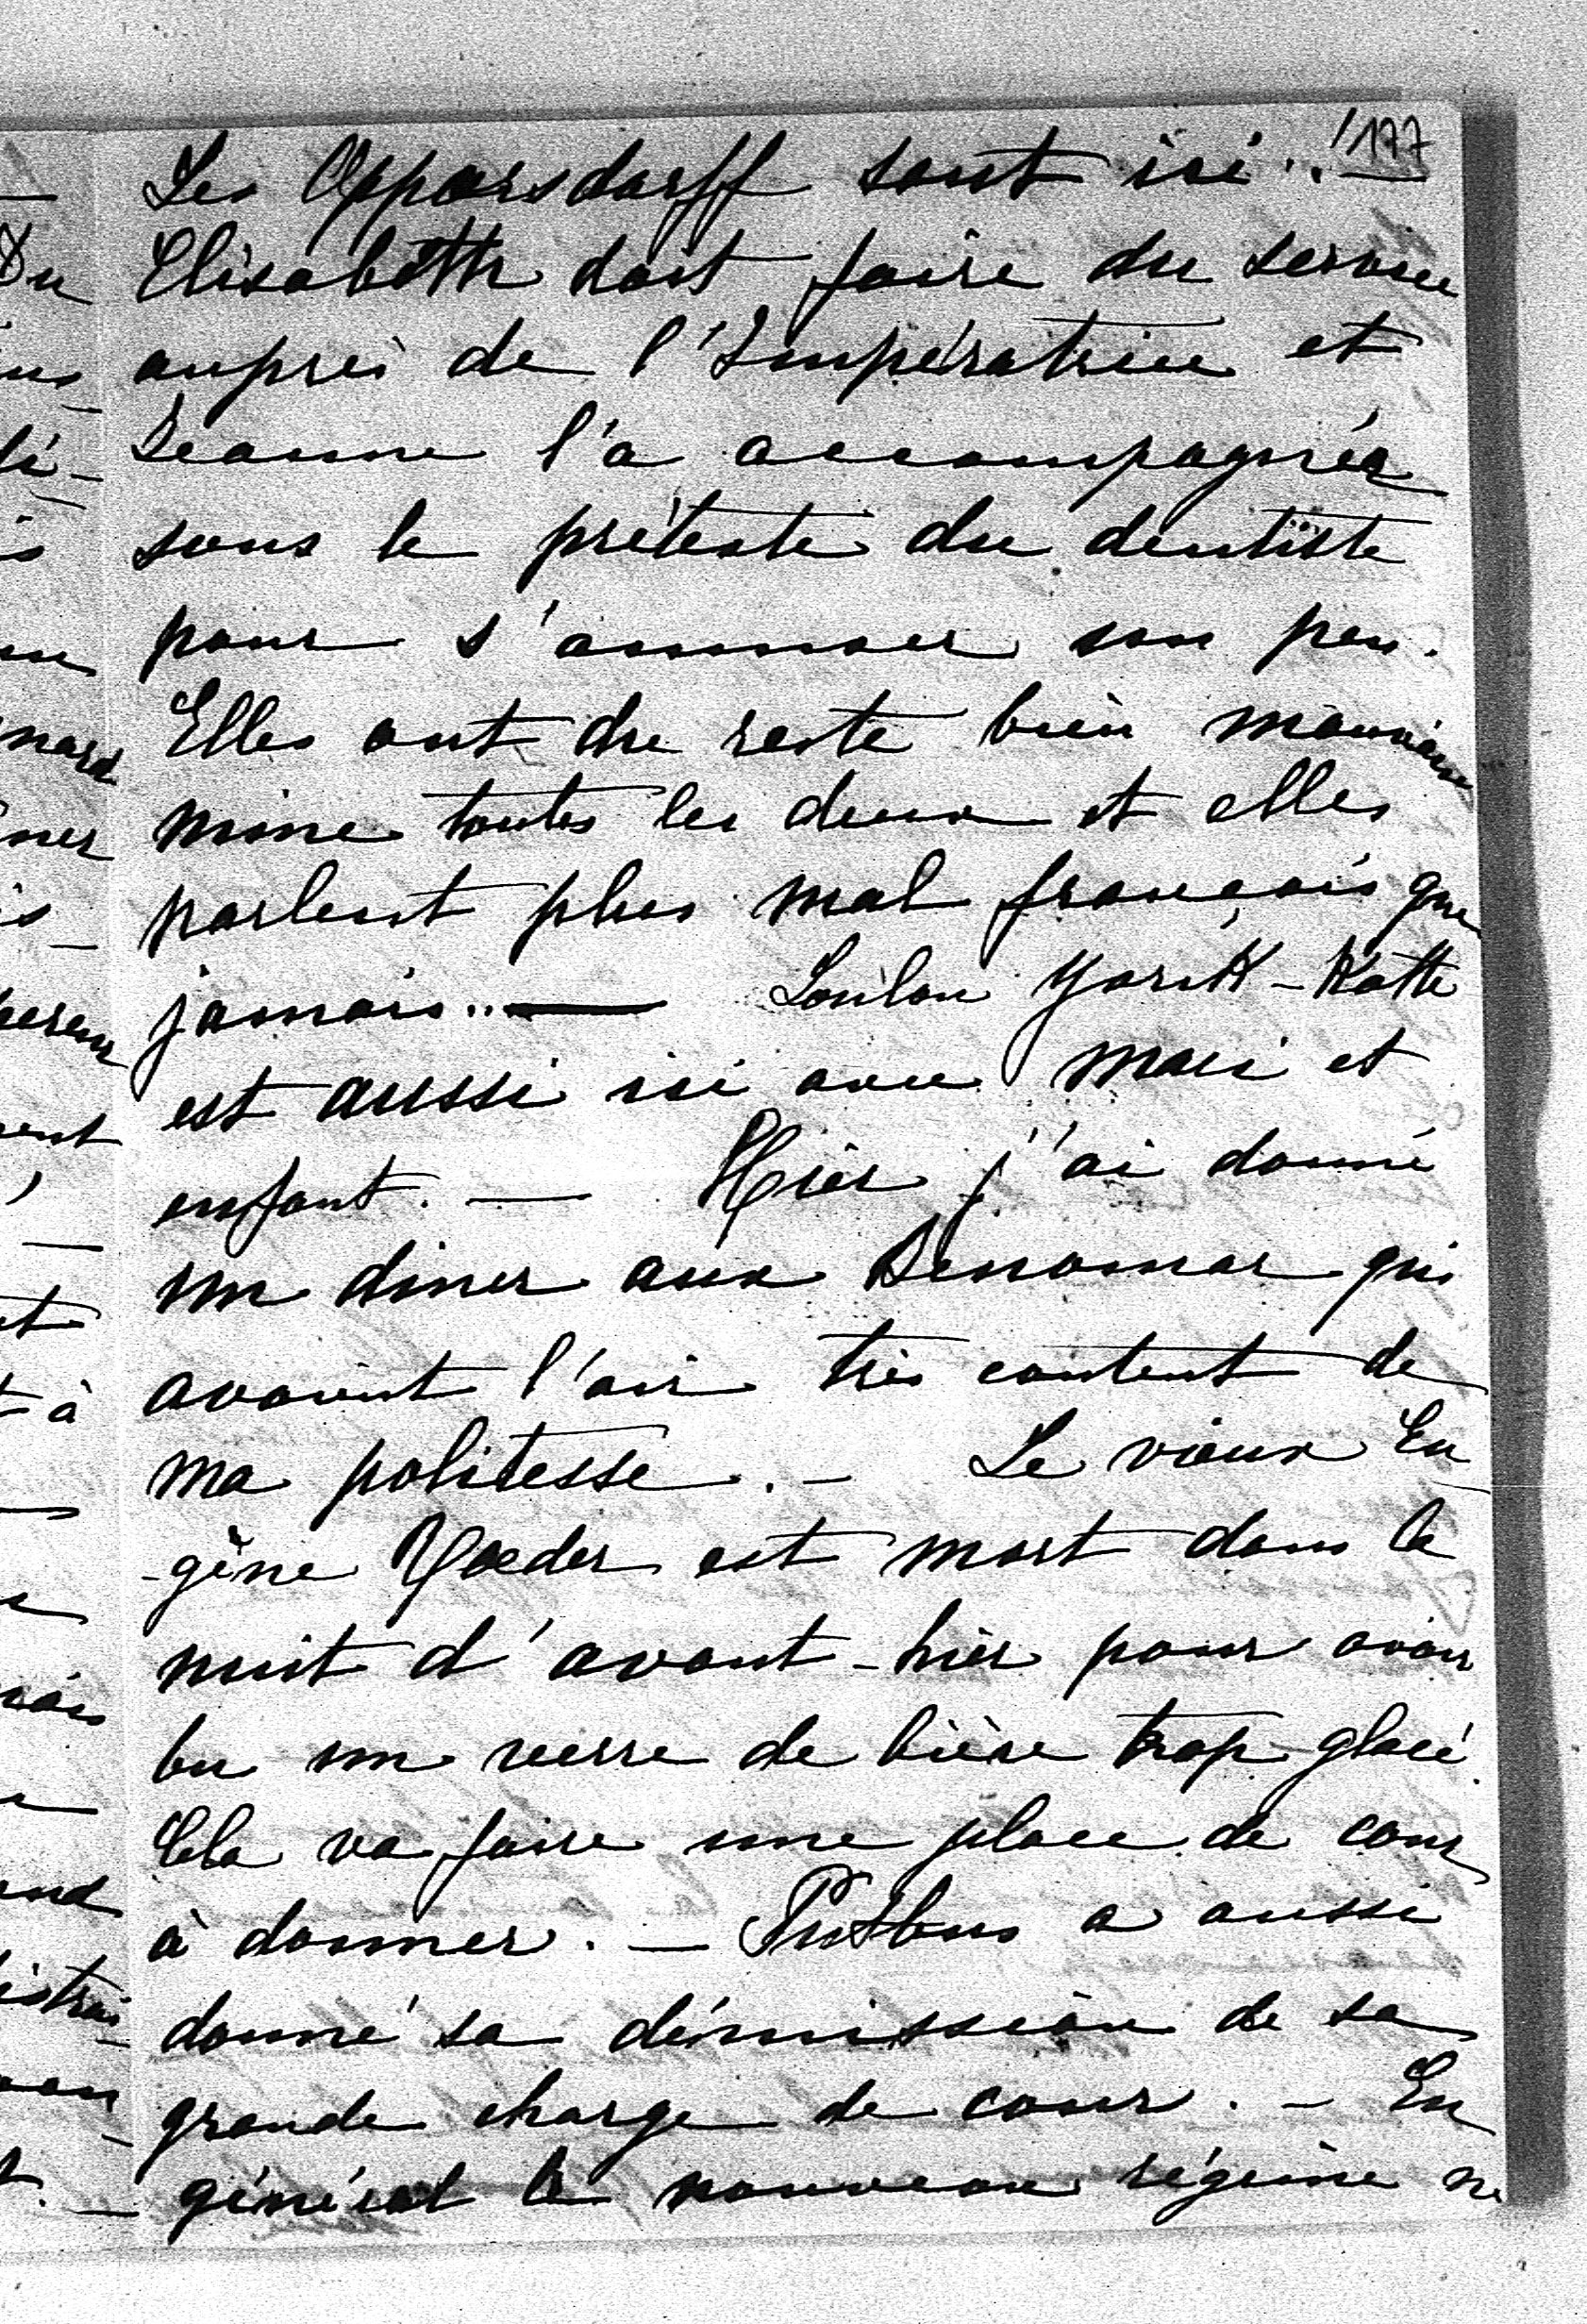 177
Les Oppersdorff sont ici..
Elisabeth doit faire du service
auprès de l'Impératrice et
Jeanne l'a accompagnée
sous le prétexte du dentiste
pour s'amuser un peu.
Elles ont du reste bien mauvaise
mine toutes les deux et elles
parlent plus mal français que
jamais.. — Loulou Yorik-Katte
est aussi ici avec mari et
enfant. — Hier j'ai donné
un diner aux Benomar qui
avaient l'air très content de
ma politesse. — Le vieux Eu
-gène Roeder est mort dans la
nuit d'avant-hier pour avoir
bu un verre de bière trop glacé.
Cela va faire une place de cour
à donner. — Putbus a aussi
donné sa démission de sa
grande charge de cour. — En
général le nouveau régime ne